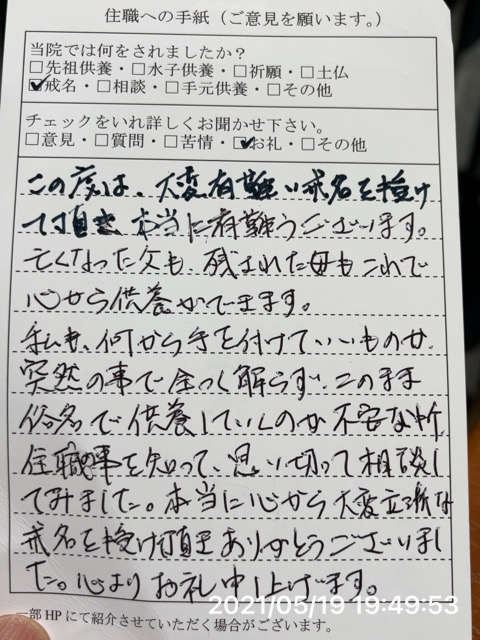 住職への手紙（ご意見を願います。）
当院では何をされましたか？
□先祖供養・□水子供養・□祈願・□土仏
☑戒名・□相談・□手元供養・□その他
チェックをいれ詳しくお聞かせ下さい。
□意見・□質問・□苦情・☑お礼・□その他
この度は、大変有難い戒名を授け
て頂き 本当に有難うございます。
亡くなった父も、残された母もこれで
心から供養ができます。
私も、何から手を付けていいものか、
突然の事で全っく解らず、このまま
俗名で供養していくのか不安な折、
住職の事を知って、思い切って相談し
てみました。本当に心から大変立派な
戒名を授け頂きありがとうございまし
た。心よりお礼申し上げます。
2021/05/19 19:49:53
一部HPにて紹介させていただく場合がございます。